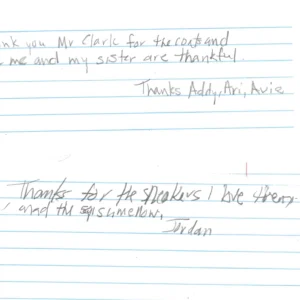 nk you Mr Clark for the coats and
me and my sister are thankful.
Thanks Addy, Ari, Avie
Thanks for the speakers I love them
and the
Jordan